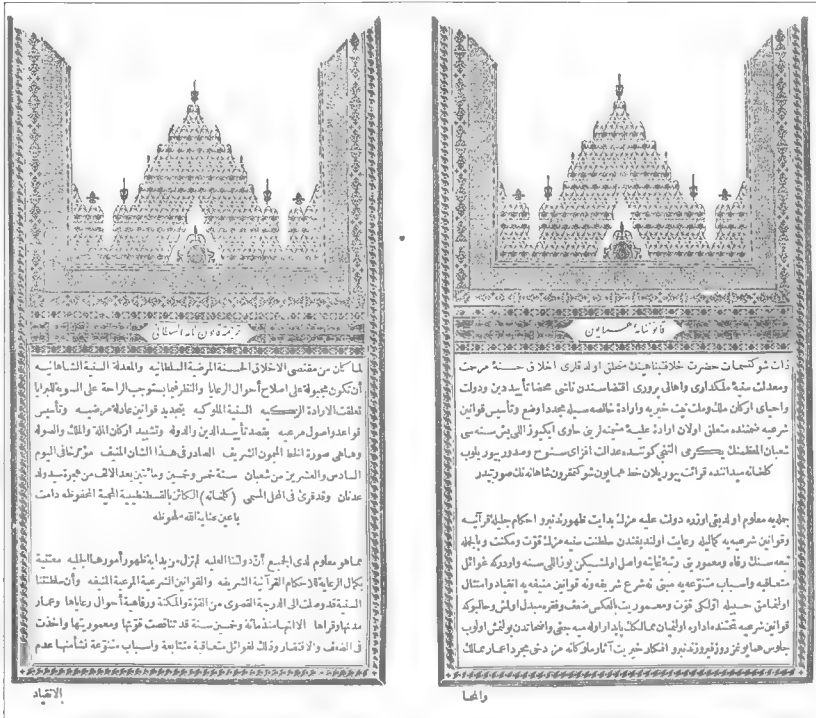 قانوننامهٔ همايون
ذات شوكتسمات حضرت خلافتپناهينك متعلق اولدقلرى اخلاق حسنهٔ مرحمت
ومعدلت سنيهٔ ملكدارى واهالى پرورى اقتضاسندن ناشى محضا تأييد دين ودولت
واحياى اركان ملك وملت نيت خيريه وارادهٔ خالصه سيله مجددا وضع وتأسيس قوانين
شرعيه ضمننده متعلق اولان ارادهٔ عليهٔ متيمنه لرين حاوى ايكيوز اللى بش سنه سى
شعبان المعظمنك يكرمى التنجى كوننده عدالت افزاى سنوح وصدور بيوريلوب
كلخانه ميداننده قرائت بيوريلان خط همايون شوكتمقرون شاهانه نك صورتيدر
جمله يه معلوم اولديغى اوزره دولت عليه مزك بدايت ظهورندنبرو احكام جليلهٔ قرآنيه
وقوانين شرعيه يه كماليله رعايت اولنديغندن سلطنت سنيه مزك قوت ومكنت وبالجمله
تبعه سنك رفاه ومعموريتى رتبهٔ غايته واصل اولمشيكن يوز اللى سنه واردركه غوائل
متعاقبه واسباب متنوعه يه مبنى نه شرع شريفه ونه قوانين منيفه يه انقياد وامتثال
اولنمامق حسبيله اولكى قوت ومعموريت بالعكس ضعف وفقره مبدل اولمش وحالبوكه
قوانين شرعيه تحتنده اداره اولنميان ممالكك پايدار اوله ميه جغى واضحاتدن بولنمش اولوب
جلوس همايونمز روز فيروزندنبرو افكار خيريت آثار ملوكانه مز دخى مجرد اعمار ممالك
والحا
ترجمة قانون نامه السلطانى
لما كان من مقتضى الاخلاق الحسنة المرضية السلطانيه والمعدلة السنية الشاهانيه
أن تكون مجبولة على اصلاح أحوال الرعايا والنظر فيما يستوجب الراحة على السوية للبرايا
تعلقت الارادة الزكيه السنية الملوكيه بتجديد قوانين عادلة مرضيه وتأسيس
قواعد واصول مرعيه بقصد تأييد الدين والدوله وتشييد اركان الملة والملك والصوله
وهاهى صورة الخط الهمايون الشريف الصادر فى هذا الشان المنيف مؤرخا فى اليوم
السادس والعشرين من شعبان سنة خمس وخمسين ومائتين بعد الالف من هجرة سيد ولد
عدنان وقد قرئ فى المحل المسمى (كلخانه) الكائن بالقسطنطينية المحمية المحفوظه دامت
باعين عناية الله ملحوظه
مما هو معلوم لدى الجميع أن دولتنا العليه لم تزل من بداية ظهور أمورها الجليله معتنية
بكمال الرعاية للاحكام القرآنية الشريفه والقوانين الشرعية المرعية المنيفه وأن سلطنتنا
السنية قد وصلت الى الدرجة القصوى من القوة والمكنة ورفاهية أحوال رعاياها وعمار
مدنها وقراها الا انها منذ مائة وخمسين سنة قد تناقصت قوتها ومعموريتها واخذت
فى الضعف والافتقار وذلك لغوائل متعاقبة متتابعة واسباب متنوعة نشأ منها عدم
الانقياد